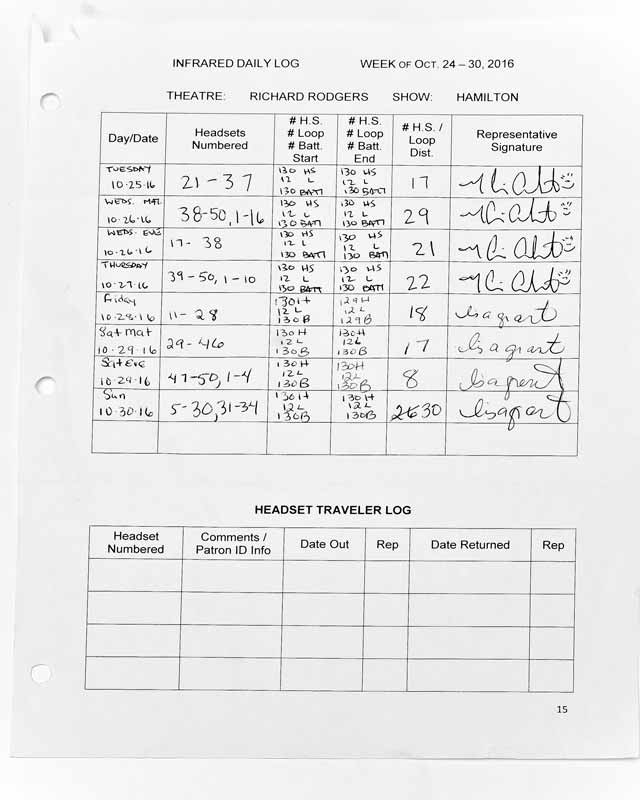 INFRARED DAILY LOG WEEK OF OCT. 24 – 30, 2016
THEATRE: RICHARD RODGERS SHOW: HAMILTON
Day/Date Headsets Numbered # H.S. # Loop # Batt. Start # H.S. # Loop # Batt. End # H.S. / Loop Dist. Representative Signature
TUESDAY 10·25·16 21-37 130 HS 12 L 130 BATT 130 HS 12 L 130 BATT 17
WEDS. MAT 10·26·16 38-50, 1-16 130 HS 12 L 130 BATT 130 HS 12 L 130 BATT 29
WEDS. EVE 10·26·16 17- 38 130 HS 12 L 130 BATT 130 HS 12 L 130 BATT 21
THURSDAY 10·27·16 39-50, 1-10 130 HS 12 L 130 BATT 130 HS 12 L 130 BATT 22
Friday 10·28·16 11- 28 130H 12L 130B 129H 12L 129B 18 lisa grant
Sat mat 10·29·16 29-46 130H 12L 130B 130H 12L 130B 17 lisa grant
Sat Eve 10·29·16 47-50, 1-4 130H 12L 130B 130H 12L 130B 8 lisa grant
Sun 10·30·16 5-30, 31-34 130H 12L 130B 130H 12L 130B 30 lisa grant
HEADSET TRAVELER LOG
Headset Numbered Comments / Patron ID Info Date Out Rep Date Returned Rep
15